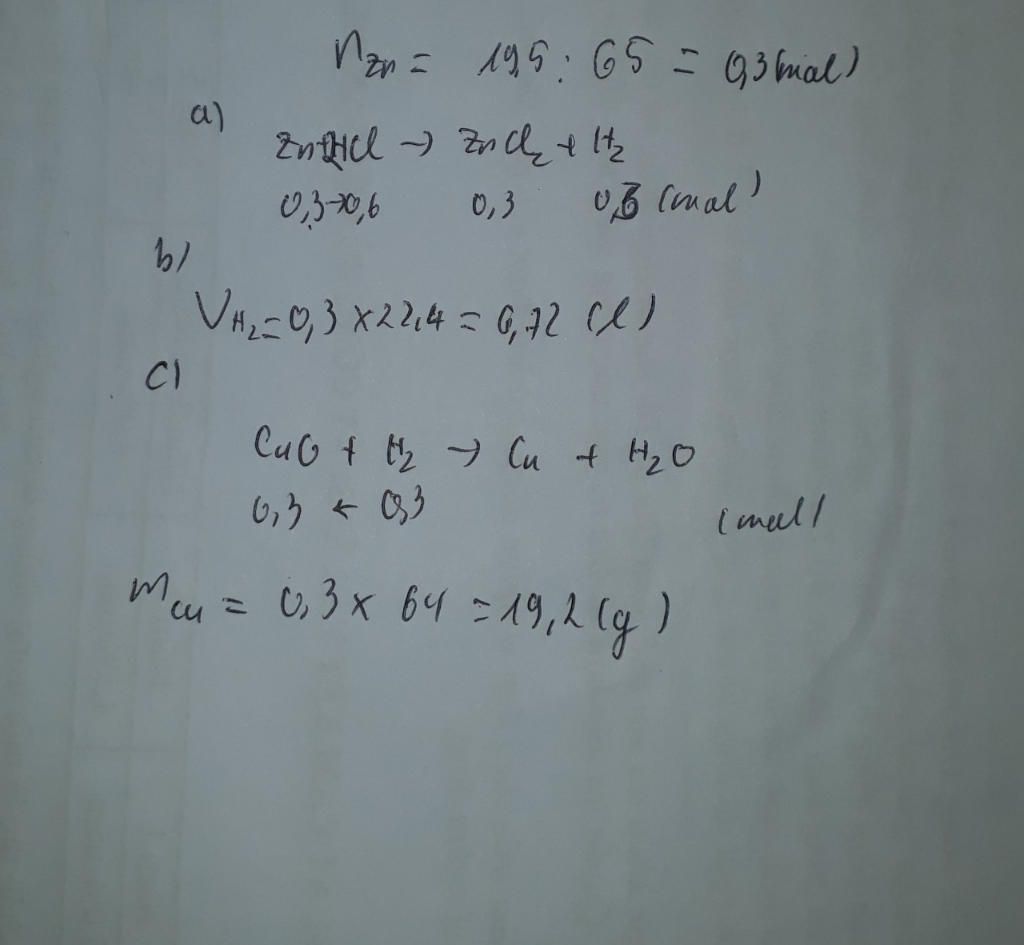 n Zn = 19,5 : 65 = 0,3 (mol)
a)
Zn + 2HCl → ZnCl₂ + H₂
0,3 → 0,6 0,3 0,3 (mol)
b)
V H₂ = 0,3 x 22,4 = 6,72 (l)
c)
CuO + H₂ → Cu + H₂O
0,3 ← 0,3 (mol)
m Cu = 0,3 x 64 = 19,2 (g)